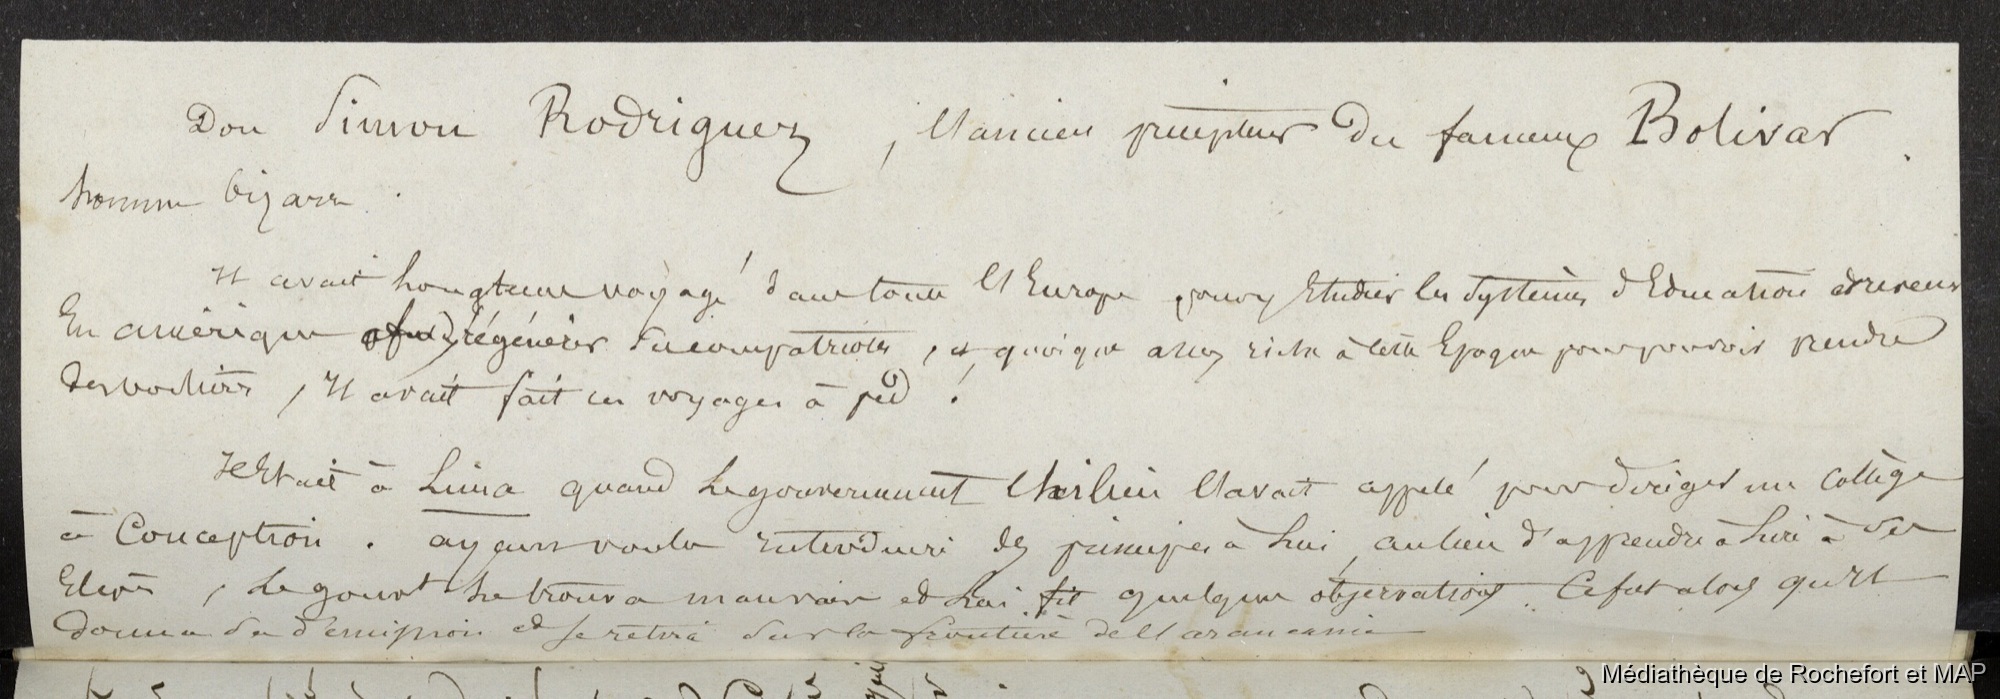 Don Simon Rodriguez, l'ancien précepteur du fameux Bolivar.
homme bizarre.
Il avait longtems voyagé dans toute l'Europe pour y Etudier les systèmes d'Education et revenir
En amérique régénérer ses compatriotes, et, quoique assez riche à cette Epoque pour pouvoir prendre
des voitures, Il avait fait ces voyages à pied !
Il Etait à Lima quand le gouvernement Chilien l'avait appelé pour diriger un Collège
à Conception. ayant voulu introduire des principes à lui, au lieu d'apprendre à lire à ses
Elèves, le gouvt le trouva mauvais et lui fit quelques observations. Ce fut alors qu'il
donna sa démission et se retira sur la frontière de l'araucanie
Médiathèque de Rochefort et MAP